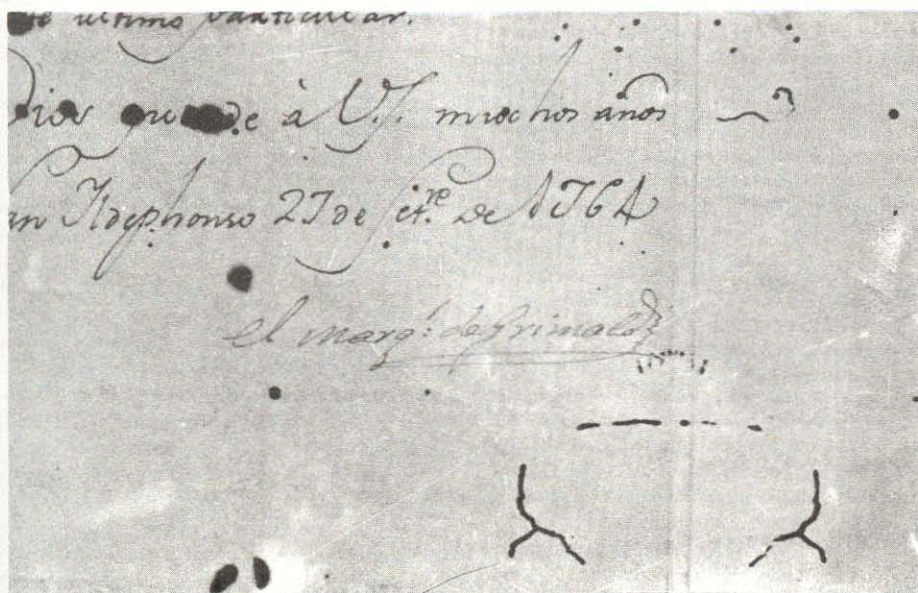 ultimo particular.
Dios guarde à V.S. muchos años
San Ildephonso 27 de Set.re de 1764
el Marq.s de Grimaldi